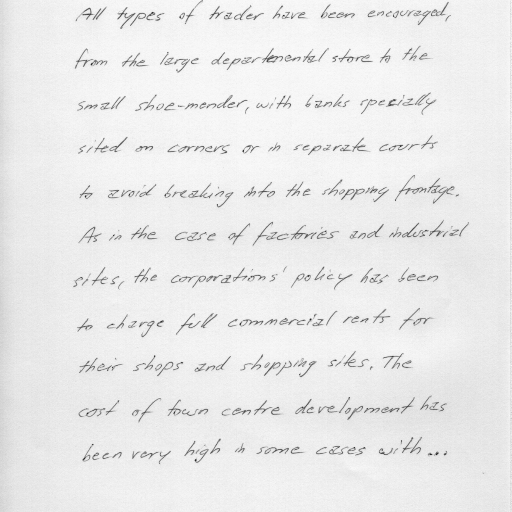 All types of trader have been encouraged,
from the large departmental store to the
small shoe-mender, with banks specially
sited on corners or in separate courts
to avoid breaking into the shopping frontage.
As in the case of factories and industrial
sites, the corporations' policy has been
to charge full commercial rents for
their shops and shopping sites. The
cost of town centre development has
been very high in some cases with...